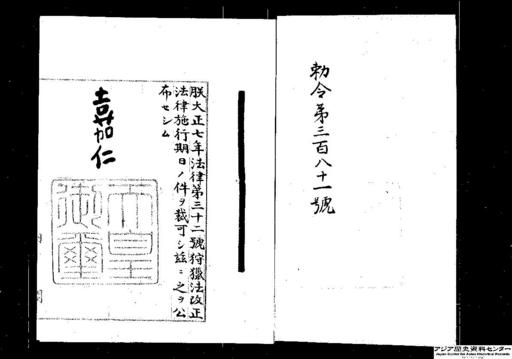 勅令第三百八十一號
朕大正七年法律第三十二號狩獵法改正
法律施行期日ノ件ヲ裁可シ茲ニ之ヲ公
布セシム
嘉仁
天皇
御璽
内閣
アジア歴史資料センター
Japan Center for Asian Historical Records